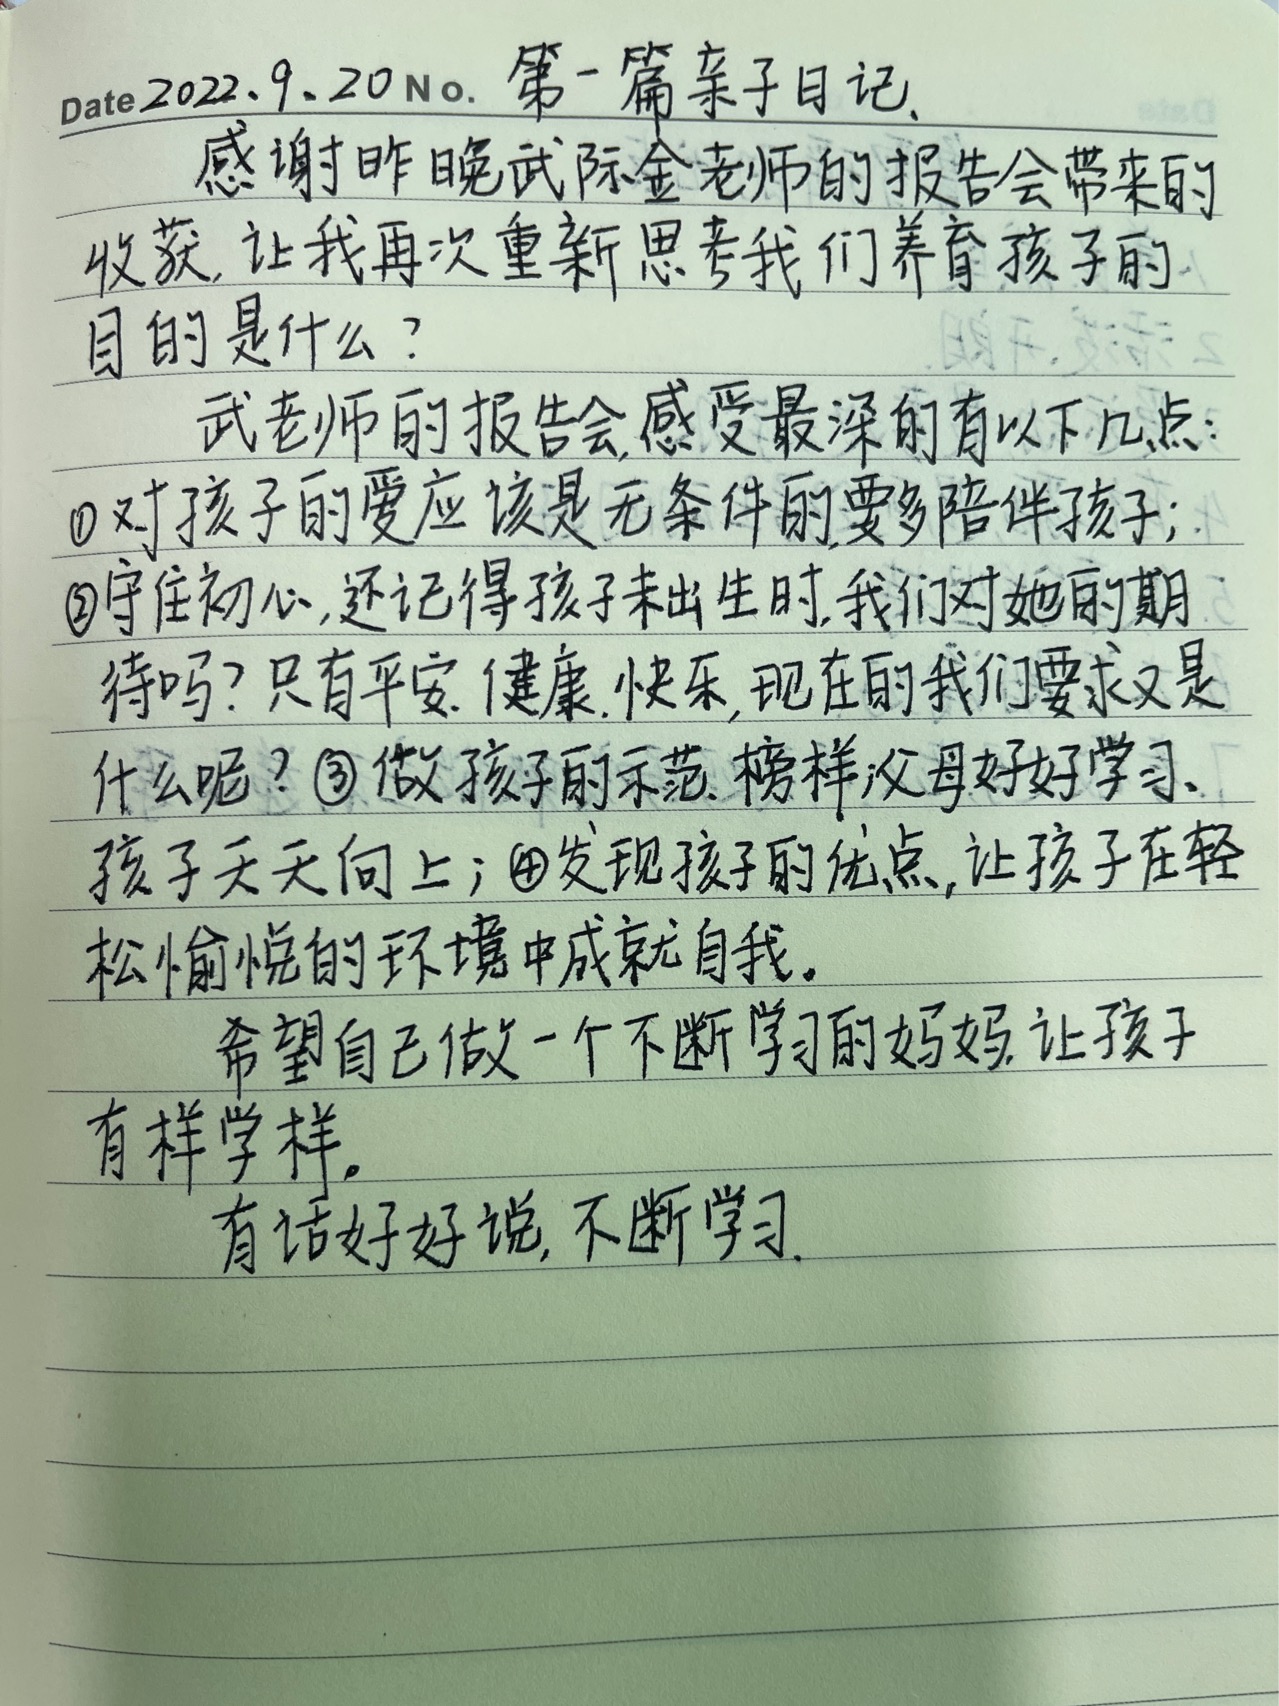 Date 2022.9.20 No. 第一篇亲子日记.
感谢昨晚武际金老师的报告会带来的
收获,让我再次重新思考我们养育孩子的
目的是什么?
武老师的报告会,感受最深的有以下几点:
①对孩子的爱应该是无条件的,要多陪伴孩子;
②守住初心,还记得孩子未出生时,我们对她的期
待吗?只有平安.健康.快乐,现在的我们要求又是
什么呢?③做孩子的示范、榜样;父母好好学习、
孩子天天向上;④发现孩子的优点,让孩子在轻
松愉悦的环境中成就自我。
希望自己做一个不断学习的妈妈,让孩子
有样学样。
有话好好说,不断学习.